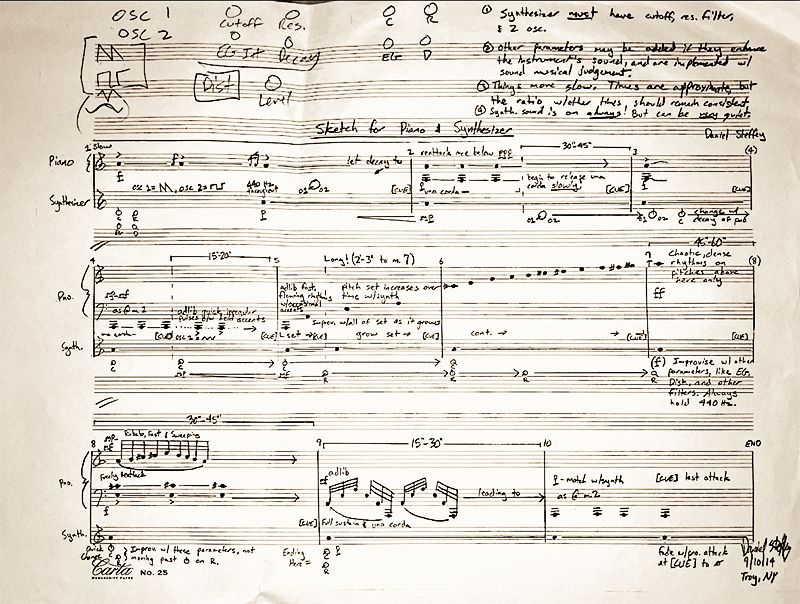 OSC 1
OSC 2
Cutoff Res.
EG Int Decay
C R
EG D
Dist
Level
① Synthesizer must have cutoff, res. filter,
& 2 osc.
② Other parameters may be added if they enhance
the instrument's sound, and are implemented w/
sound musical judgement.
③ Things more slow. Times are approximate, but
the ratio w/other times, should remain consistent.
④ Synth. sound is on always! But can be very quiet.
Sketch for Piano & Synthesizer
Daniel Steffey
1 Slow
2 reattack once below ppp
30"-45"
3
(4)
Piano
let decay to
f
osc 1= , osc 2=
440 Hz
throughout
[CUE]
una corda
begin to release una
corda slowly!
[CUE]
[CUE]
Synthesizer
O1 O2
mp
O1 O2
O1 O2
C
change w/
decay of pno
4
15"-20"
5
Long! (2'-3' to m. 7)
6
7
45"-60"
(8)
Pno.
as @ m. 2
adlib quick irregular
adlib fast,
flowing rhythms
w/occasional
accents
pitch set increases over
time w/synth
Improv. w/all of set as it grows
Chaotic, dense
rhythms on
pitches above
here only
ff
una corda
[CUE]
osc 2=
[CUE]
L set
[CUE]
grow set
[CUE]
cont.
[CUE]
[CUE]
Synth.
C
C
mp
C
mf
R
C
R
R
R
(f) Improvise w/other
parameters, like EG,
Dist, and other
filters. Always
hold 440 Hz.
30"-45"
8
mp
Rubato, Fast & Sweeping
9
15"-30"
10
END
Pno.
mf
Freely Reattack
f
ff
adlib
leading to
f - match w/synth
as @ m. 2
[CUE] last attack
[CUE] Full sustain & una corda
Synth.
Quick
Change
C
R
Improv. w/ these parameters, not
moving past on R.
Ending
Here =
C
R
Fade w/pno. attack
at [CUE] to
Daniel Steffey
9/10/14
Troy, NY
Carta
MANUSCRIPT PAPER
NO. 25